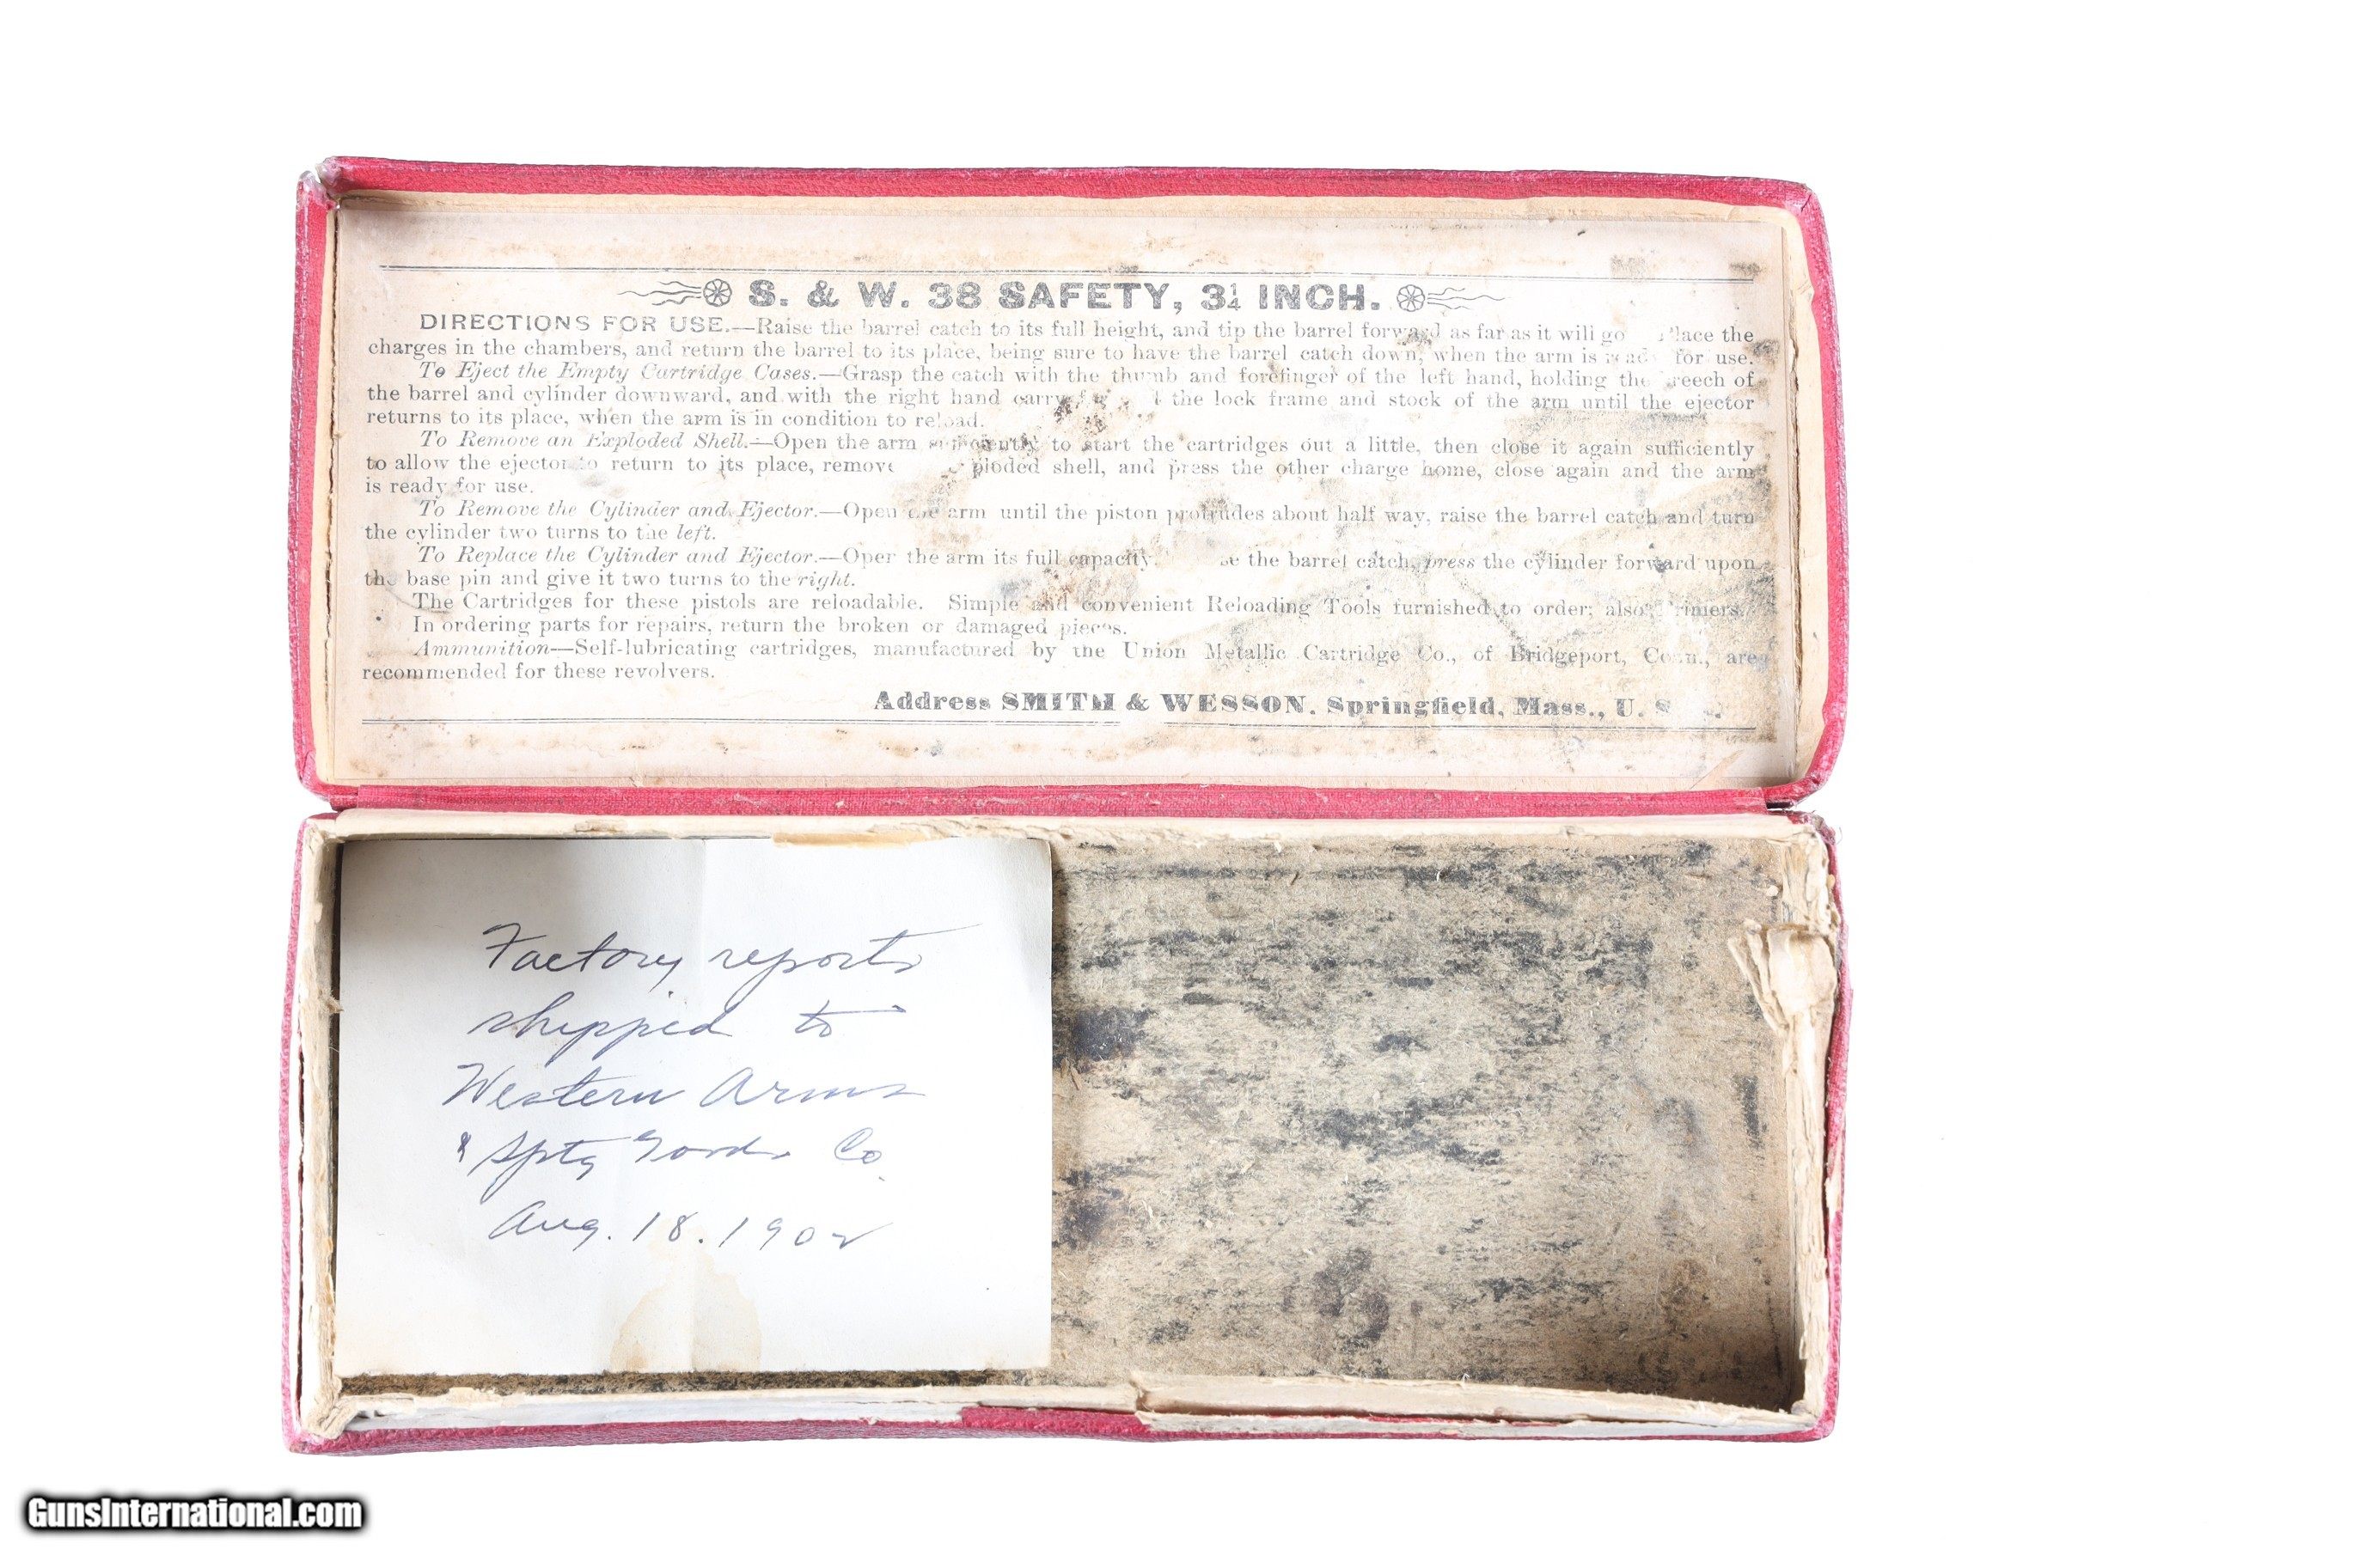 S. & W. 38 SAFETY, 3¼ INCH.
DIRECTIONS FOR USE.—Raise the barrel catch to its full height, and tip the barrel forward as far as it will go lace the
charges in the chambers, and return the barrel to its place, being sure to have the barrel catch down, when the arm is ready for use.
To Eject the Empty Cartridge Cases.—Grasp the catch with the thumb and forefinger of the left hand, holding the reech of
the barrel and cylinder downward, and with the right hand carry the lock frame and stock of the arm until the ejector
returns to its place, when the arm is in condition to reload.
To Remove an Exploded Shell.—Open the arm sufficiently to start the cartridges out a little, then close it again sufficiently
to allow the ejector to return to its place, remove ploded shell, and press the other charge home, close again and the arm
is ready for use.
To Remove the Cylinder and Ejector.—Open the arm until the piston protrudes about half way, raise the barrel catch and turn
the cylinder two turns to the left.
To Replace the Cylinder and Ejector.—Open the arm its full capacity, the barrel catch, press the cylinder forward upon
the base pin and give it two turns to the right.
The Cartridges for these pistols are reloadable. Simple and convenient Reloading Tools furnished to order; also Primers.
In ordering parts for repairs, return the broken or damaged pieces.
Ammunition—Self-lubricating cartridges, manufactured by the Union Metallic Cartridge Co., of Bridgeport, Conn., are
recommended for these revolvers.
Address SMITH & WESSON, Springfield, Mass., U. S.
Factory reports
shipped to
Western Arms
& Sptg Goods Co
Aug. 18. 1902
GunsInternational.com